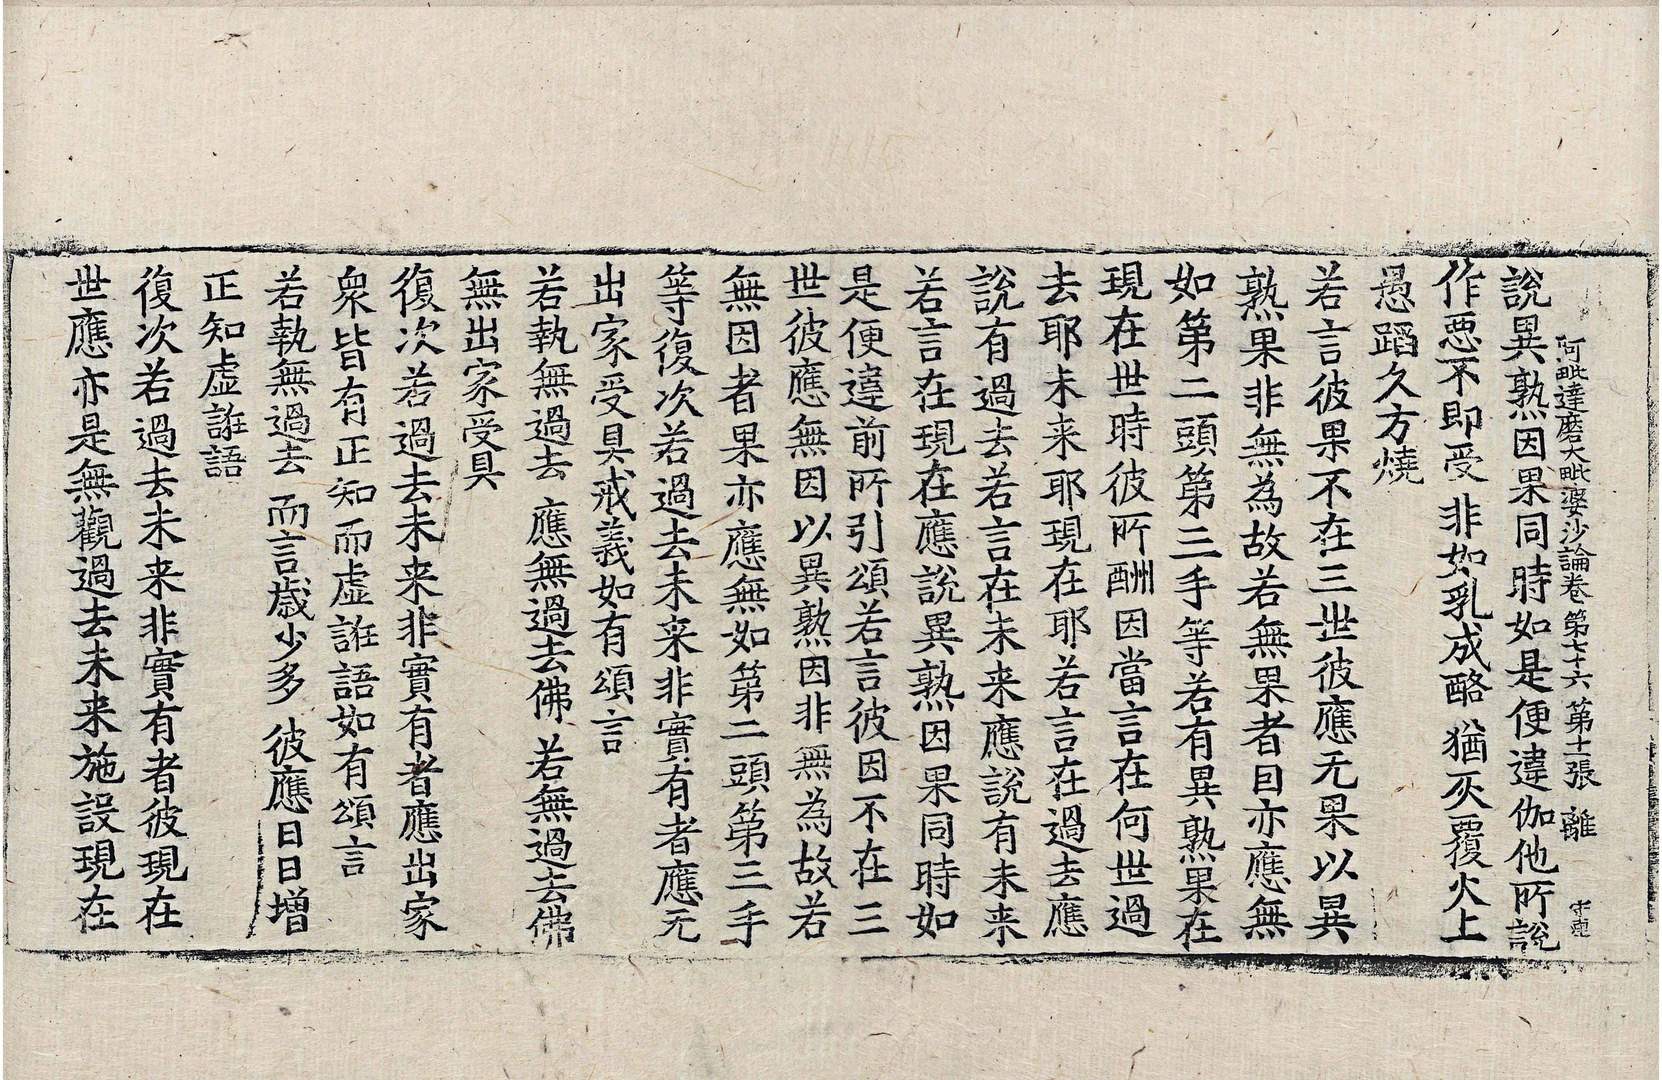 阿毗達磨大毗婆沙論卷第七十六 第十一張 離
說異熟因果同時如是便違伽他所說
作惡不即受 非如乳成酪 猶灰覆火上
愚蹈久方燒
若言彼果不在三世彼應无果以異
熟果非無為故若無果者因亦應無
如第二頭第三手等若有異熟果在
現在世時彼所酬因當言在何世過
去耶未来耶現在耶若言在過去應
說有過去若言在未来應說有未来
若言在現在應說異熟因果同時如
是便違前所引頌若言彼因不在三
世彼應無因以異熟因非無為故若
無因者果亦應無如第二頭第三手
等復次若過去未来非實有者應无
出家受具戒義如有頌言
若執無過去 應無過去佛 若無過去佛
無出家受具
復次若過去未来非實有者應出家
衆皆有正知而虛誑語如有頌言
若執無過去 而言歲少多 彼應日日增
正知虛誑語
復次若過去未来非實有者彼現在
世應亦是無觀過去未来施設現在